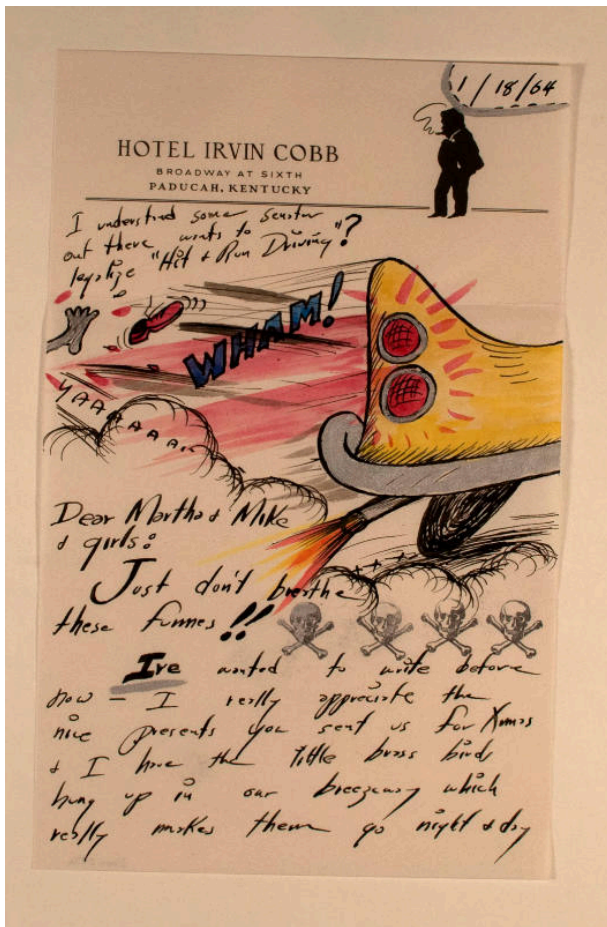 1/18/64
HOTEL IRVIN COBB
BROADWAY AT SIXTH
PADUCAH, KENTUCKY
I understand some senator
out there wants to
legalize "Hit & Run Driving"?
WHAM!
YAAAAAAA..
Dear Martha & Mike
& girls:
Just don't breathe
these fumes!!
I've wanted to write before
now – I really appreciate the
nice presents you sent us for Xmas
& I have the little brass birds
hung up in our breezeway which
really makes them go night & day